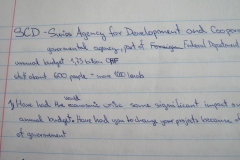 SCD - Swiss Agency for Development and Cooper
governmental agency, part of Federal Department
annual budget 1,73 billion CHF
staff about 600 people + 1000 locals
world
Have had the economic crisis some significant impact on
annual budget. Have had you to change your projects because of
of government